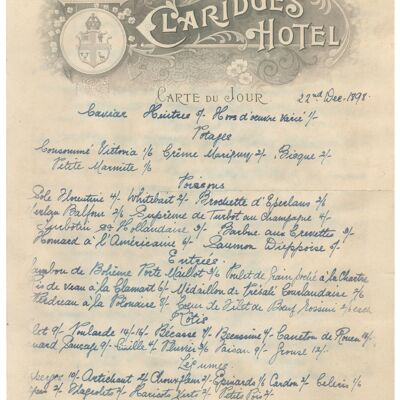 CLARIDGES
HOTEL
CARTE DU JOUR 22nd Dec. 1898.
Caviar Huitres 5/- Hors d'oeuvre Varié 1/-
Potages
Consommé Victoria 1/6 Crême Marigny 2/- Bisque 2/-
Petite Marmite 1/6
Poissons
Sole Florentine 4/- Whitebait 2/- Brochette d'Eperlans 2/6
Merlan Balfour 2/- Suprême de Turbot au Champagne 4/-
Turbotin Hollandaise 9/- Barbue aux Crevettes 9/-
Homard à l'Américaine 8/- Saumon Dieppoise 5/-
Entrée
Jambon de Bohême Porte Maillot 3/6 Poulet de grain poêlé à la Chartre
Ris de veau à la Clamart 6/- Médaillon de Courlandaise
Perdreau à la Polonaise 9/- Coeur de Filet de Boeuf Rossini 2/- each
Rôtis
lot 9/- Poularde 10/- 14/- Bécasse 7/- Bécassine 4/- Caneton de Rouen
nard Sauvage 9/- Caille 4/- Pluvier 3/6 Faisan 9/- Grouse 12/-
Légumes
10/- Artichaut 2/- Choux fleur 2/- Epinards 1/6 Cardon 2/- Céleris 1/6
2/- Flageolets 2/- Haricots Verts 2/- Petits Pois 2/-